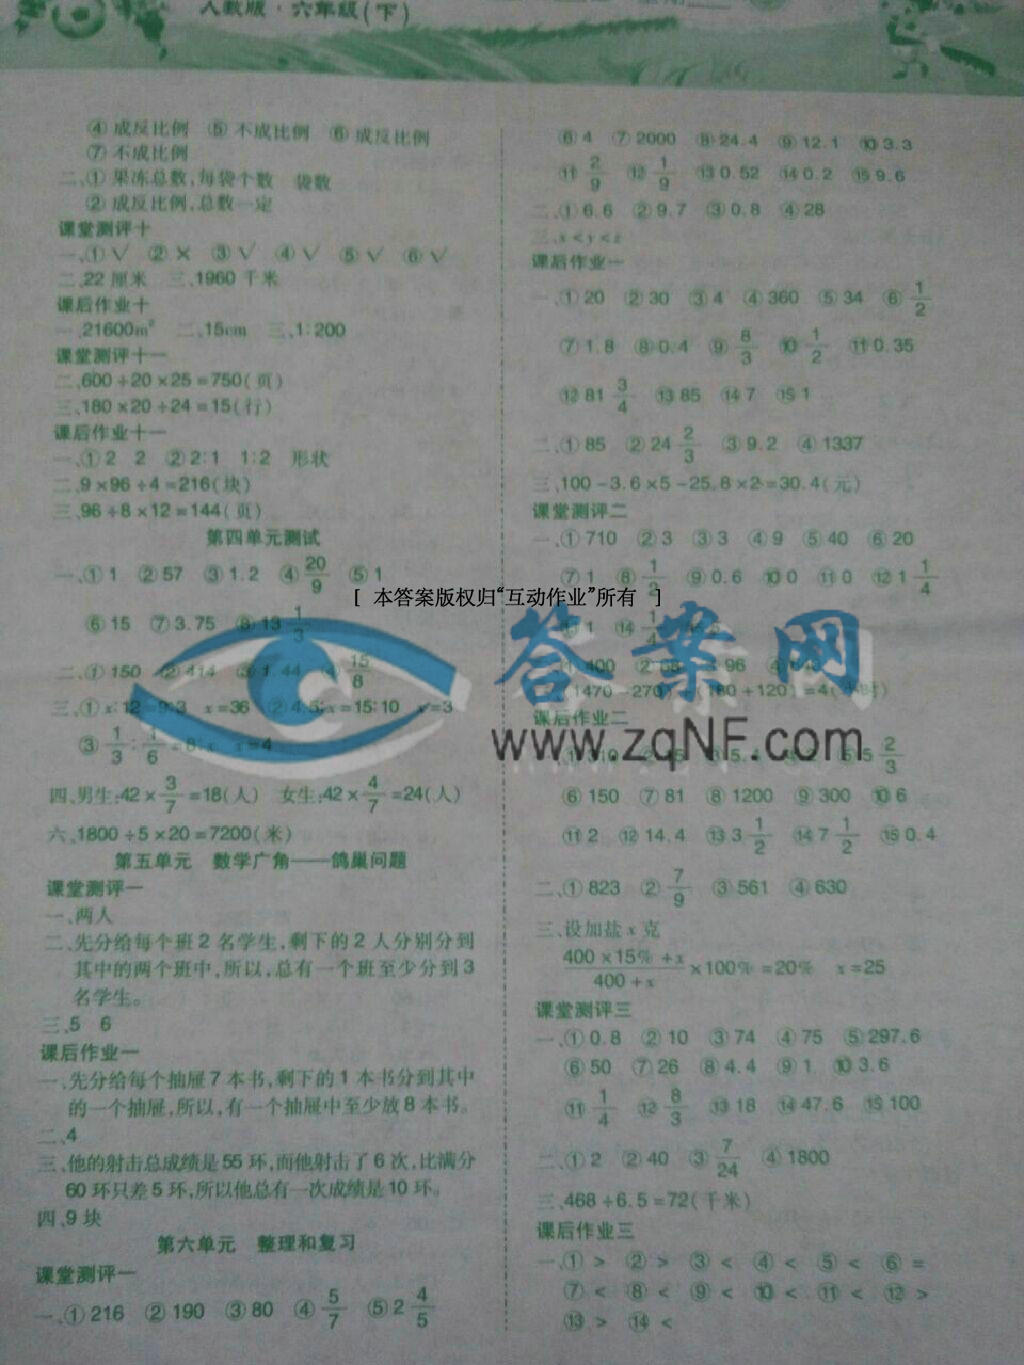 人教版·六年级(下)
④ 成反比例 ⑤ 不成比例 ⑥ 成反比例
⑦ 不成比例
二、① 果冻总数,每袋个数 袋数
② 成反比例,总数一定
课堂测评十
一、① √ ② × ③ √ ④ √ ⑤ √ ⑥ √
二、22 厘米 三、1960 千米
课后作业十
一、21600m² 二、15cm 三、1:200
课堂测评十一
二、600÷20×25=750(页)
三、180×20÷24=15(行)
课后作业十一
一、① 2 2 ② 2:1 1:2 形状
二、9×96÷4=216(块)
三、96÷8×12=144(页)
第四单元测试
一、① 1 ② 57 ③ 1.2 ④ 20/9 ⑤ 1
⑥ 15 ⑦ 3.75 ⑧ 13 1/3
二、① 150 ② 414 ③ 1.44 ④ 15/8
三、① x:12=9:3 x=36 ② 4.5:x=15:10 x=3
③ 1/3:1/6=8:x x=4
四、男生:42×3/7=18(人) 女生:42×4/7=24(人)
六、1800÷5×20=7200(米)
第五单元 数学广角——鸽巢问题
课堂测评一
一、两人
二、先分给每个班 2 名学生,剩下的 2 人分别分到
其中的两个班中,所以,总有一个班至少分到 3
名学生。
三、5 6
课后作业一
一、先分给每个抽屉 7 本书,剩下的 1 本书分到其中
的一个抽屉,所以,有一个抽屉中至少放 8 本书。
二、4
三、他的射击总成绩是 55 环,而他射击了 6 次,比满分
60 环只差 5 环,所以他总有一次成绩是 10 环。
四、9 块
第六单元 整理和复习
课堂测评一
一、① 216 ② 190 ③ 80 ④ 5/7 ⑤ 2 4/5
⑥ 4 ⑦ 2000 ⑧ 24.4 ⑨ 12.1 ⑩ 3.3
⑪ 2/9 ⑫ 1/9 ⑬ 0.52 ⑭ 0.2 ⑮ 9.6
二、① 6.6 ② 9.7 ③ 0.8 ④ 28
三、x<y<z
课后作业一
一、① 20 ② 30 ③ 4 ④ 360 ⑤ 34 ⑥ 1/2
⑦ 1.8 ⑧ 0.4 ⑨ 8/3 ⑩ 1/2 ⑪ 0.35
⑫ 81 3/4 ⑬ 85 ⑭ 7 ⑮ 1
二、① 85 ② 24 2/3 ③ 9.2 ④ 1337
三、100-3.6×5-25.8×2=30.4(元)
课堂测评二
一、① 710 ② 3 ③ 3 ④ 9 ⑤ 40 ⑥ 20
⑦ 1 ⑧ 1/2 ⑨ 0.6 ⑩ 0 ⑪ 0 ⑫ 1 1/4
[ 本答案版权归“互动作业”所有 ]
1 ⑭ 1/4
400 ② ③ 96 ④
(1470-270)÷(180+120)=4(小时)
答案网
www.zqNF.com
课后作业二
一、① ② ③ 5.4 ④ ⑤ 5 2/3
⑥ 150 ⑦ 81 ⑧ 1200 ⑨ 300 ⑩ 6
⑪ 2 ⑫ 14.4 ⑬ 3 1/2 ⑭ 7 1/2 ⑮ 0.4
二、① 823 ② 7/9 ③ 561 ④ 630
三、设加盐 x 克
(400×15%+x)/(400+x)×100%=20% x=25
课堂测评三
一、① 0.8 ② 10 ③ 74 ④ 75 ⑤ 297.6
⑥ 50 ⑦ 26 ⑧ 4.4 ⑨ 1 ⑩ 3.6
⑪ 1/4 ⑫ 8/3 ⑬ 18 ⑭ 47.6 ⑮ 100
二、① 2 ② 40 ③ 7/24 ④ 1800
三、468÷6.5=72(千米)
课后作业三
一、① > ② > ③ < ④ < ⑤ < ⑥ =
⑦ < ⑧ < ⑨ < ⑩ < ⑪ < ⑫ >
⑬ > ⑭ <